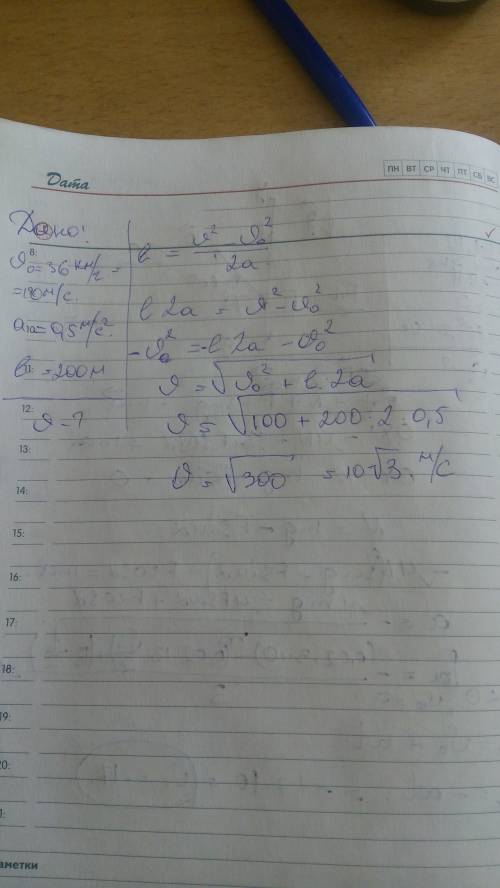 Дата
ПН ВТ СР ЧТ ПТ СБ ВС
Дано:
8:
υ₀ = 36 км/ч =
= 10 м/с.
10:
a = 0,5 м/с²
11:
l = 200 м
12:
υ - ?
l = (υ² - υ₀²) / 2a
l 2a = υ² - υ₀²
-υ₀² = -l 2a - υ₀²
υ = √(υ₀² + l · 2a)
υ = √(100 + 200 · 2 · 0,5)
υ = √300 = 10√3 м/с
13:
14:
15:
16:
17:
18:
19:
20:
аметки